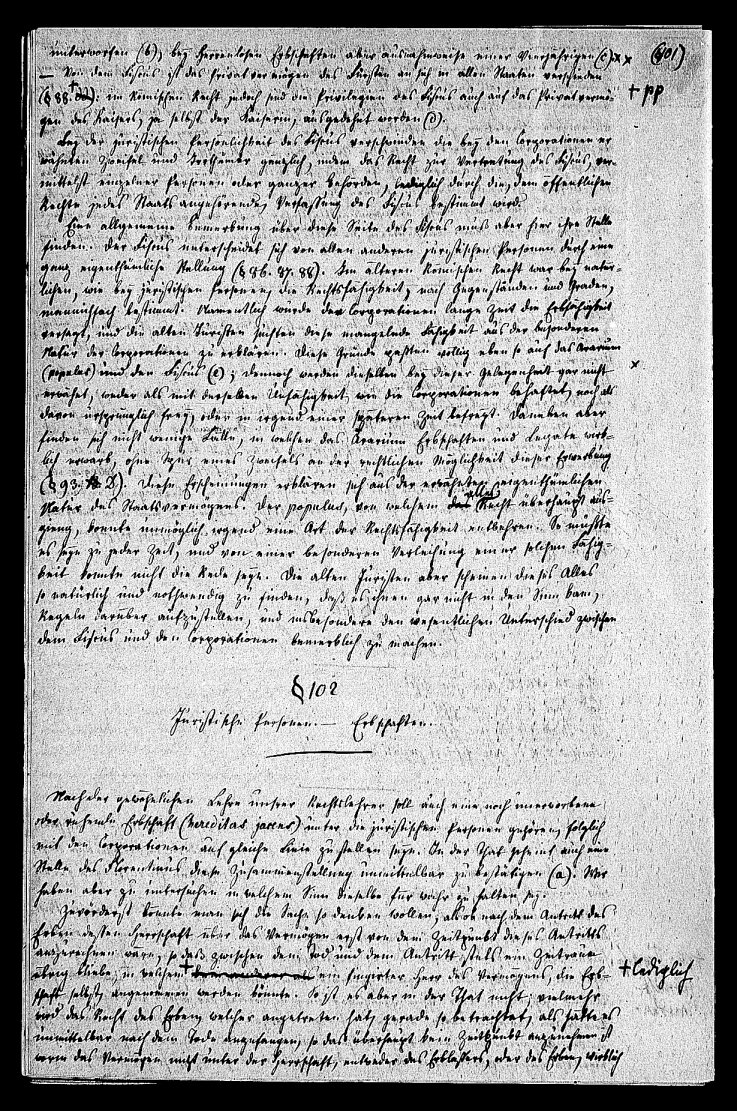 unterworfen (b), bey herrenlosen Erbschaften aber ausnahmsweise einer vierjährigen (c) ×× (§101)
— Von dem Fiscus ist das Privatvermögen des Fürsten an sich in allen Staaten verschieden
(§ 88. ); im Römischen Recht jedoch sind die Privilegien des Fiscus auch auf das Privatvermö- + pp
gen des Kaisers, ja selbst der Kaiserin, ausgedehnt worden (d).
Bey der juristischen Persönlichkeit des Fiscus verschwinden die bey den Corporationen er
wähnten Zweifel und Irrthümer gänzlich, indem das Recht zur Vertretung des Fiscus, ver
mittelst einzelner Personen oder ganzer Behörden, lediglich durch die, dem öffentlichen
Rechte jedes Staats angehörende, Verfassung des Fiscus bestimmt wird.
Eine allgemeine Bemerkung über diese Seite des Fiscus muß aber hier ihre Stelle
finden. Der Fiscus unterscheidet sich von allen anderen juristischen Personen durch eine
ganz eigenthümliche Stellung (§ 86. 87. 88). Im älteren Römischen Recht war bey natür-
lichen, wie bey juristischen Personen, die Rechtsfähigkeit, nach Gegenständen und Graden,
mannichfach bestimmt. Namentlich wurde den Corporationen lange Zeit die Erbfähigkeit
versagt, und die alten Juristen suchten diese mangelnde Fähigkeit aus der besonderen
Natur der Corporationen zu erklären. Diese Gründe paßten völlig eben so auch das Aerarium
(populus) und den Fiscus (e); dennoch werden dieselben bey dieser Gelegenheit gar nicht ×
erwähnt, weder als mit derselben Unfähigkeit, wie die Corporationen behaftet, noch als
davon ursprünglich frey, oder in irgend einer späteren Zeit befreyt. Daneben aber
finden sich nicht wenige Fälle, in welchen das Aerarium Erbschaften und Legate wirk-
lich erwarb, ohne Spur eines Zweifels an der rechtlichen Möglichkeit dieser Erwerbung
(§ 93. ). Diese Erscheinungen erklären sich aus der erwähnten eigenthümlichen
Natur des Staatsvermögens. Der populus, von welchem alles Recht überhaupt aus-
gieng, konnte unmöglich irgend eine Art der Rechtsfähigkeit entbehren. So mußte
es seyn zu jeder Zeit, und von einer besonderen Verleihung einer solchen Fähig-
keit konnte nicht die Rede seyn. Die alten Juristen aber scheinen dieses Alles
so natürlich und nothwendig zu finden, daß es ihnen gar nicht in den Sinn kam,
Regeln darüber aufzustellen, und insbesondere den wesentlichen Unterschied zwischen
dem Fiscus und den Corporationen bemerklich zu machen.
§ 102
Juristische Personen. — Erbschaften.
Nach der gewöhnlichen Lehre unsrer Rechtslehrer soll auch eine noch unerworbene
oder ruhende Erbschaft (hereditas jacens) unter die juristischen Personen gehören, folglich
mit den Corporationen auf gleiche Linie zu stellen seyn. In der That scheint auch eine
Stelle des Florentinus diese Zusammenstellung unmittelbar zu bestätigen (a). Wir
haben aber zu untersuchen in welchem Sinn dieselbe für wahr zu halten sey.
Zuvörderst könnte man sich die Sache so denken wollen, als ob nach dem Antritt des
Erben dessen Herrschaft über das Vermögen erst von dem Zeitpunkt dieses Antritts
anzurechnen wäre, so daß zwischen dem Tod und dem Antritt stets ein Zeitraum
übrig bliebe, in welchem + ein fingirter Herr des Vermögens, die Erb- + lediglich
schaft selbst, angenommen werden könnte. So ist es aber in der That nicht; vielmehr
wird das Recht des Erben, welcher angetreten hat, gerade so betrachtet, als hätte es
unmittelbar nach dem Tode angefangen, so daß überhaupt kein Zeitpunkt anzunehmen ist
worin das Vermögen nicht unter der Herrschaft, entweder des Erblassers, oder des Erben, wirklich